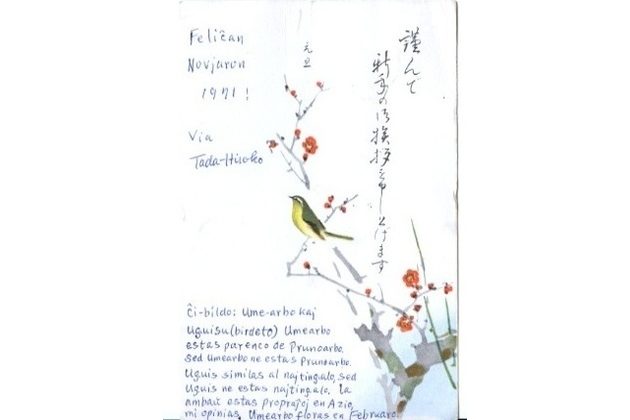 Feliĉan
Novjaron
1971!
Via
Tada-Hiroko
元旦
謹んで
新年の御挨拶を申し上げます
Ĉi-bildo: Ume-arbo kaj
Uguisu (birdeto) Umearbo
estas parenco de Prunoarbo,
sed Umearbo ne estas Prunarbo.
Uguis similas al najtingalo, sed
Uguis ne estas najtingalo. La
ambaŭ estas propraĵoj en Azio,
mi opinias. Umearbo floras en Februaro.